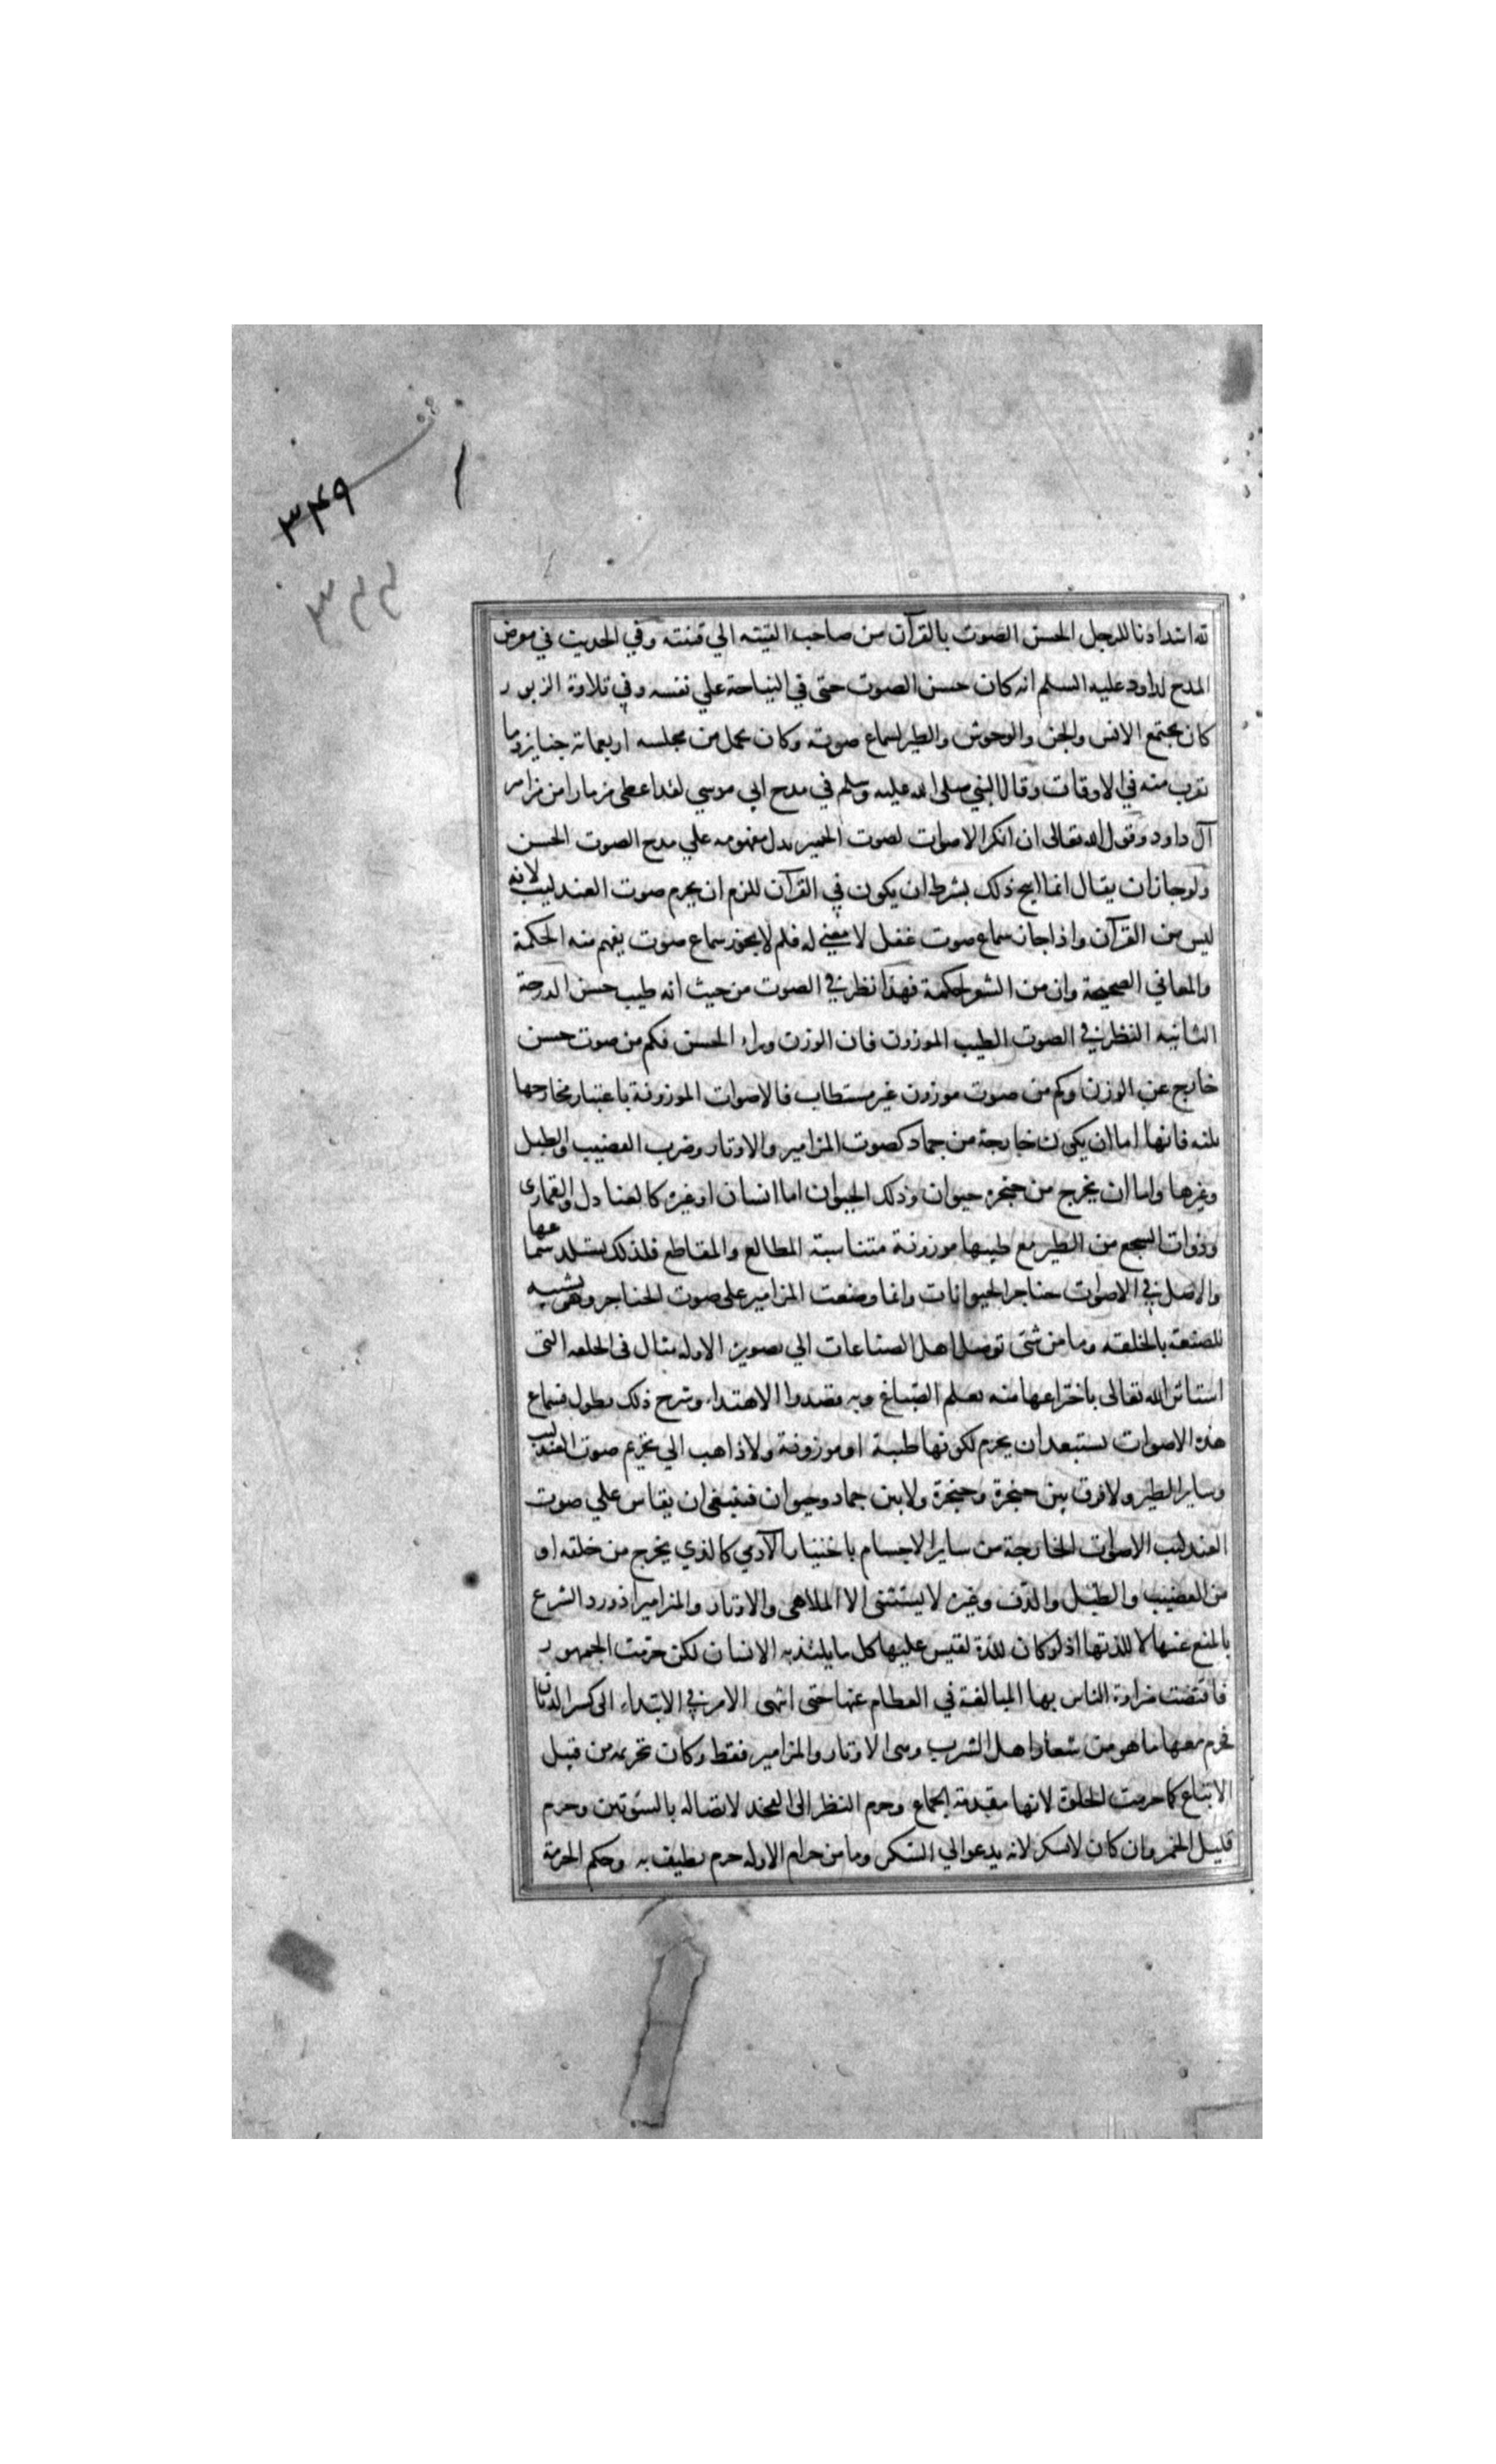 ٣٤٩
٣٢٢
لله اشد اذنا للرجل الحسن الصوت بالقرآن من صاحب القينه الي قينته وفي الحديث في معرض
المدح لداود عليه السلم انه كان حسن الصوت حتى في النياحة علي نفسه وفي تلاوة الزبور
كان يجتمع الانس والجن والوحوش والطير لسماع صوته وكان يحمل من مجلسه اربعمائة جنازة وما
يقرب منه في الاوقات وقال النبي صلى الله عليه وسلم في مدح ابي موسي لقد اعطى مزمارا من مزامير
آل داود وقول الله تعالى ان انكر الاصوات لصوت الحمير يدل مفهومه علي مدح الصوت الحسن
ولو جاز ان يقال انما ابيح ذلك بشرط ان يكون في القرآن للزم ان يحرم صوت العندليب لانه
ليس من القرآن واذا جاز سماع صوت غفل لا معني له فلم لا يجوز سماع صوت يفهم منه الحكمة
والمعاني الصحيحة وان من الشعر لحكمة فهذا نظر في الصوت من حيث انه طيب حسن الدرجة
الثانيه النظر في الصوت الطيب الموزون فان الوزن وراء الحسن فكم من صوت حسن
خارج عن الوزن وكم من صوت موزون غير مستطاب فالاصوات الموزونة باعتبار مخارجها
ثلثه فانها اما ان يكون خارجة من جماد كصوت المزامير والاوتار وضرب القضيب والطبل
وغيرها واما ان يخرج من حنجرة حيوان وذلك الحيوان اما انسان او غيره كالعنادل والقمارى
وذوات السجع من الطير مع طيبها موزونة متناسبة المطالع والمقاطع فلذلك يستلذ سماعها
والاصل في الاصوات حناجر الحيوانات وانما وضعت المزامير على صوت الحناجر وهو تشبيه
للصنعة بالخلقه وما من شئ توصل اهل الصناعات الي تصويره الا وله مثال فى الخلقه التى
استاثر الله تعالى باختراعها منه تعلم الصباغ وبه قصدوا الاهتداء وشرح ذلك يطول فسماع
هذه الاصوات يستبعد ان يحرم لكونها طيبة او موزونة ولا ذاهب الي تحريم صوت العندليب
وساير الطير ولا فرق بين حنجرة وحنجرة ولا بين جماد وحيوان فينبغى ان يقاس علي صوت
العندليب الاصوات الخارجة من ساير الاجسام باختيار الآدمي كالذي يخرج من خلقه او
من القضيب والطبل والدف وغيره لا يستثنى الا الملاهى والاوتار والمزامير اذ ورد الشرع
بالمنع عنها لا للذتها اذ لو كان للذة لقيس عليها كل ما يلتذ به الانسان لكن حرمت الخمور
فاقتضت ضراوة الناس بها المبالغة في الفطام عنها حتى انتهى الامر في الابتداء الى كسر الدنان
فحرم معها ما هو من شعار اهل الشرب وهى الاوتار والمزامير فقط وكان تحريمه من قبل
الاتباع كما حرمت الخلوة لانها مقدمة الجماع وحرم النظر الى الفخذ لاتصاله بالسوئتين وحرم
قليل الخمر وان كان لا يسكر لانه يدعو الي السكر وما من حرام الا وله حرم يطيف به وحكم الحرمة